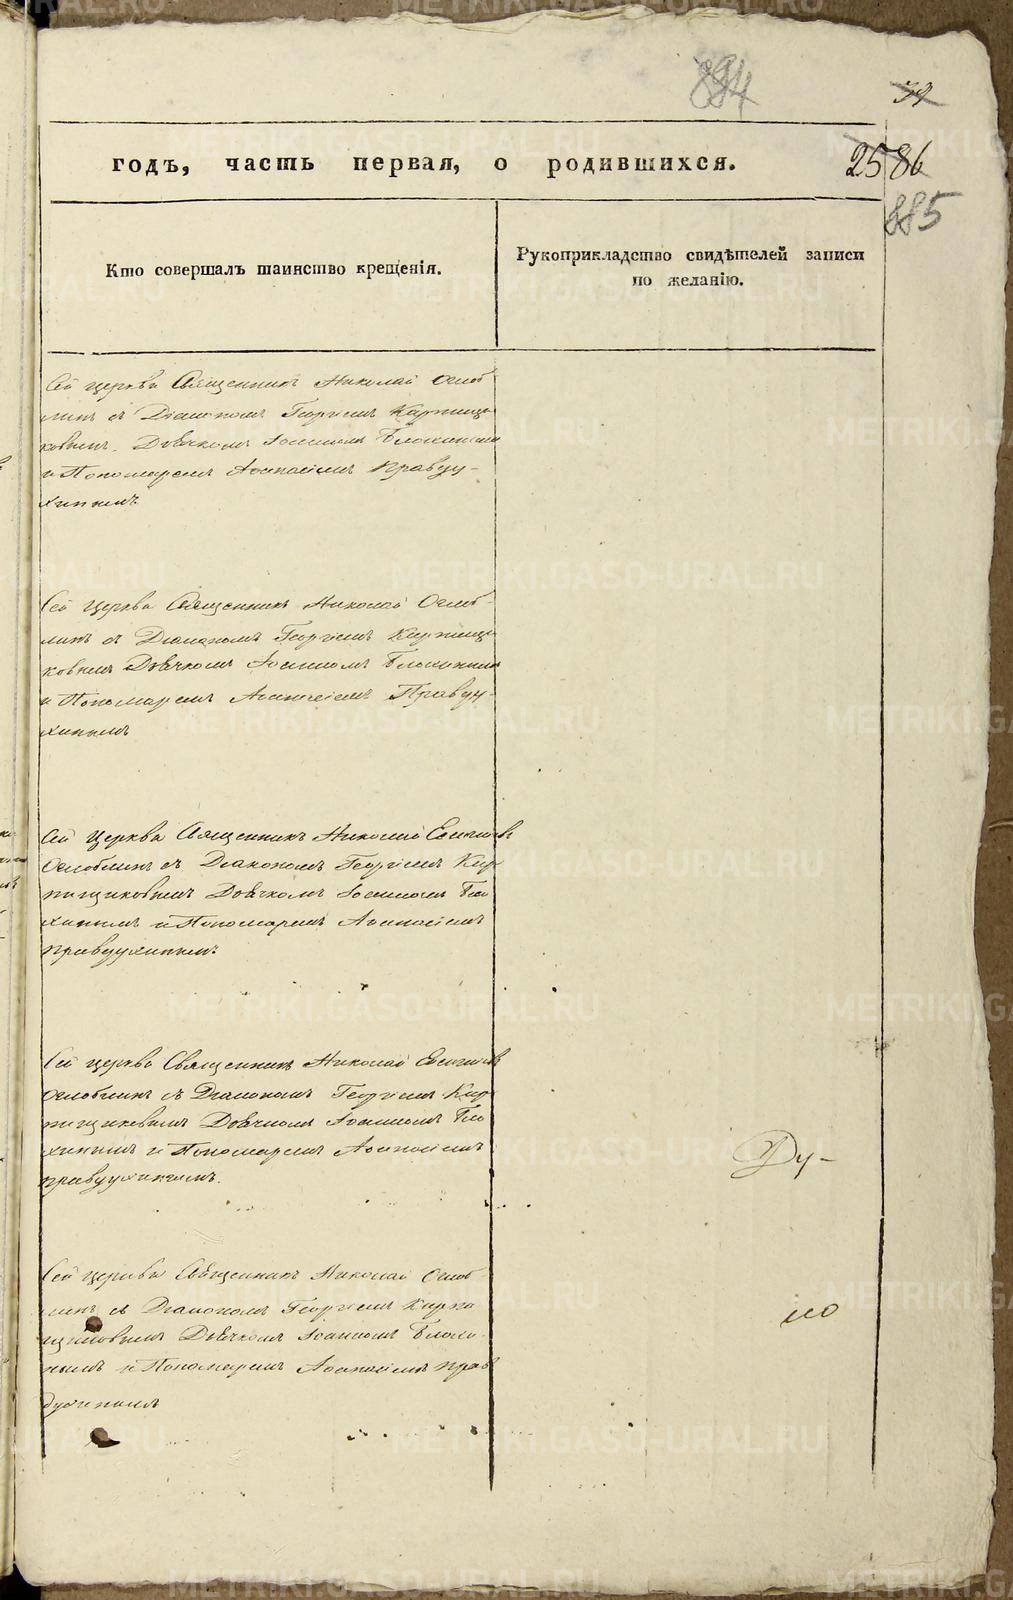 894
39
2586
885
годъ, часть первая, о родившихся.
Кто совершалъ таинство крещенія.
Рукоприкладство свидѣтелей записи
по желанію.
Сей церкви Священникъ Николай Оглоб
линъ съ Діакономъ Георгіемъ Кирпищи
ковымъ. Дьячкомъ Іоанномъ Блохинымъ
и Пономаремъ Аѳанасіемъ Правду-
хинымъ
Сей Церкви Священникъ Николай Оглоб-
линъ съ Діакономъ Георгіемъ Кирпищи
ковымъ Дьячкомъ Іоанномъ Блохинымъ
и Пономаремъ Аѳанасіемъ Правду-
хинымъ
Сей Церкви Священникъ Николай
Оглоблинъ съ Діакономъ Георгіемъ Кир
пищиковымъ Дьячкомъ Іоанномъ Бло
хинымъ и Пономаремъ Аѳанасіемъ
Правдухинымъ.
Сей церкви Священникъ Николай
Оглоблинъ съ Діакономъ Георгіемъ Кир
пищиковымъ Дьячкомъ Іоанномъ Бло
хинымъ и Пономаремъ Аѳанасіемъ
Правдухинымъ.
Ду-
Сей церкви Священникъ Николай Оглоб
линъ съ Діакономъ Георгіемъ Кирпи
щиковымъ Дьячкомъ Іоанномъ Блохи
нымъ и Пономаремъ Аѳанасіемъ Прав
духинымъ
METRIKI.GASO-URAL.RU